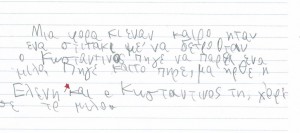 Μια φορα κι εναν καιρο ηταν
ενα σπιτακι με να δεντρο
ο Κωσταντινος πηγε να παρει ενα
μιλο πηγε κατο πηρε, μα ηρθε η
Ελενη και ο Κωσταντινος τη,
σε το μιλο